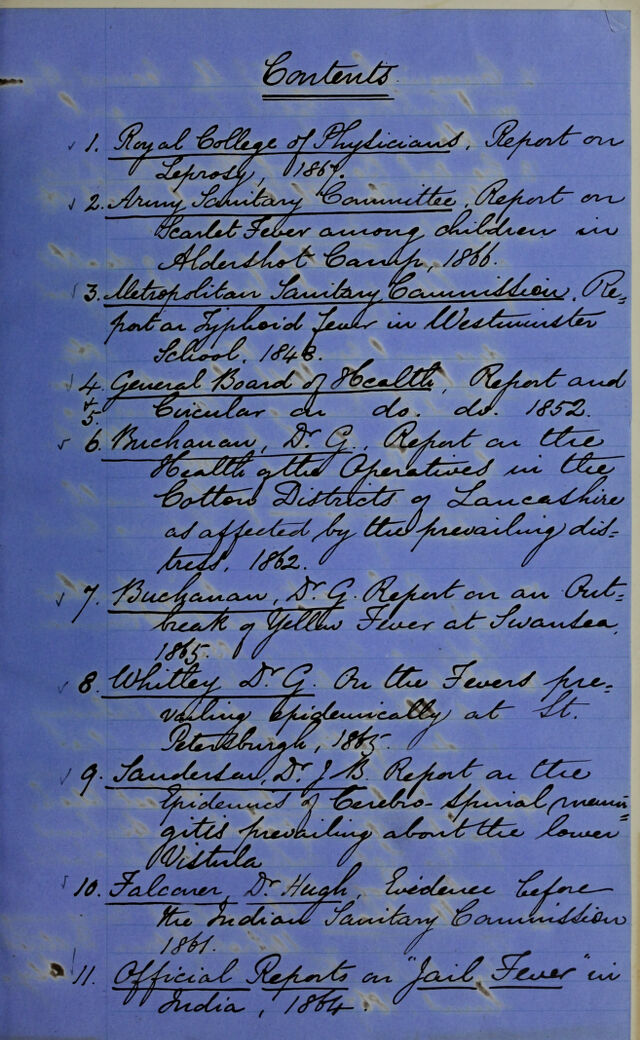 Contents.
1. Royal College of Physicians, Report on
Leprosy, 1867.
2. Army Sanitary Committee, Report on
Scarlet Fever among children in
Aldershot Camp, 1866.
3. Metropolitan Sanitary Commission, Re=
port on Typhoid fever in Westminster
School. 1848.
4. General Board of Health, Report and
+
5. Circular on do. do. 1852.
6. Buchanan, Dr G., Report on the
Health of the Operatives in the
Cotton Districts of Lancashire
as affected by the prevailing dis=
tress, 1862.
7. Buchanan, Dr G. Report on an Out=
break of Yellow Fever at Swansea,
1865.
8. Whitley Dr G. On the Fevers pre=
vailing epidemically at St.
Petersburgh, 1865.
9. Sanderson, Dr J. B. Report on the
Epidemics of Cerebro-Spinal menin=
gitis prevailing about the lower
Vistula
10. Falconer, Dr Hugh, Evidence before
the Indian Sanitary Commission
1861.
11. Official Reports on "Jail Fever" in
India, 1864.